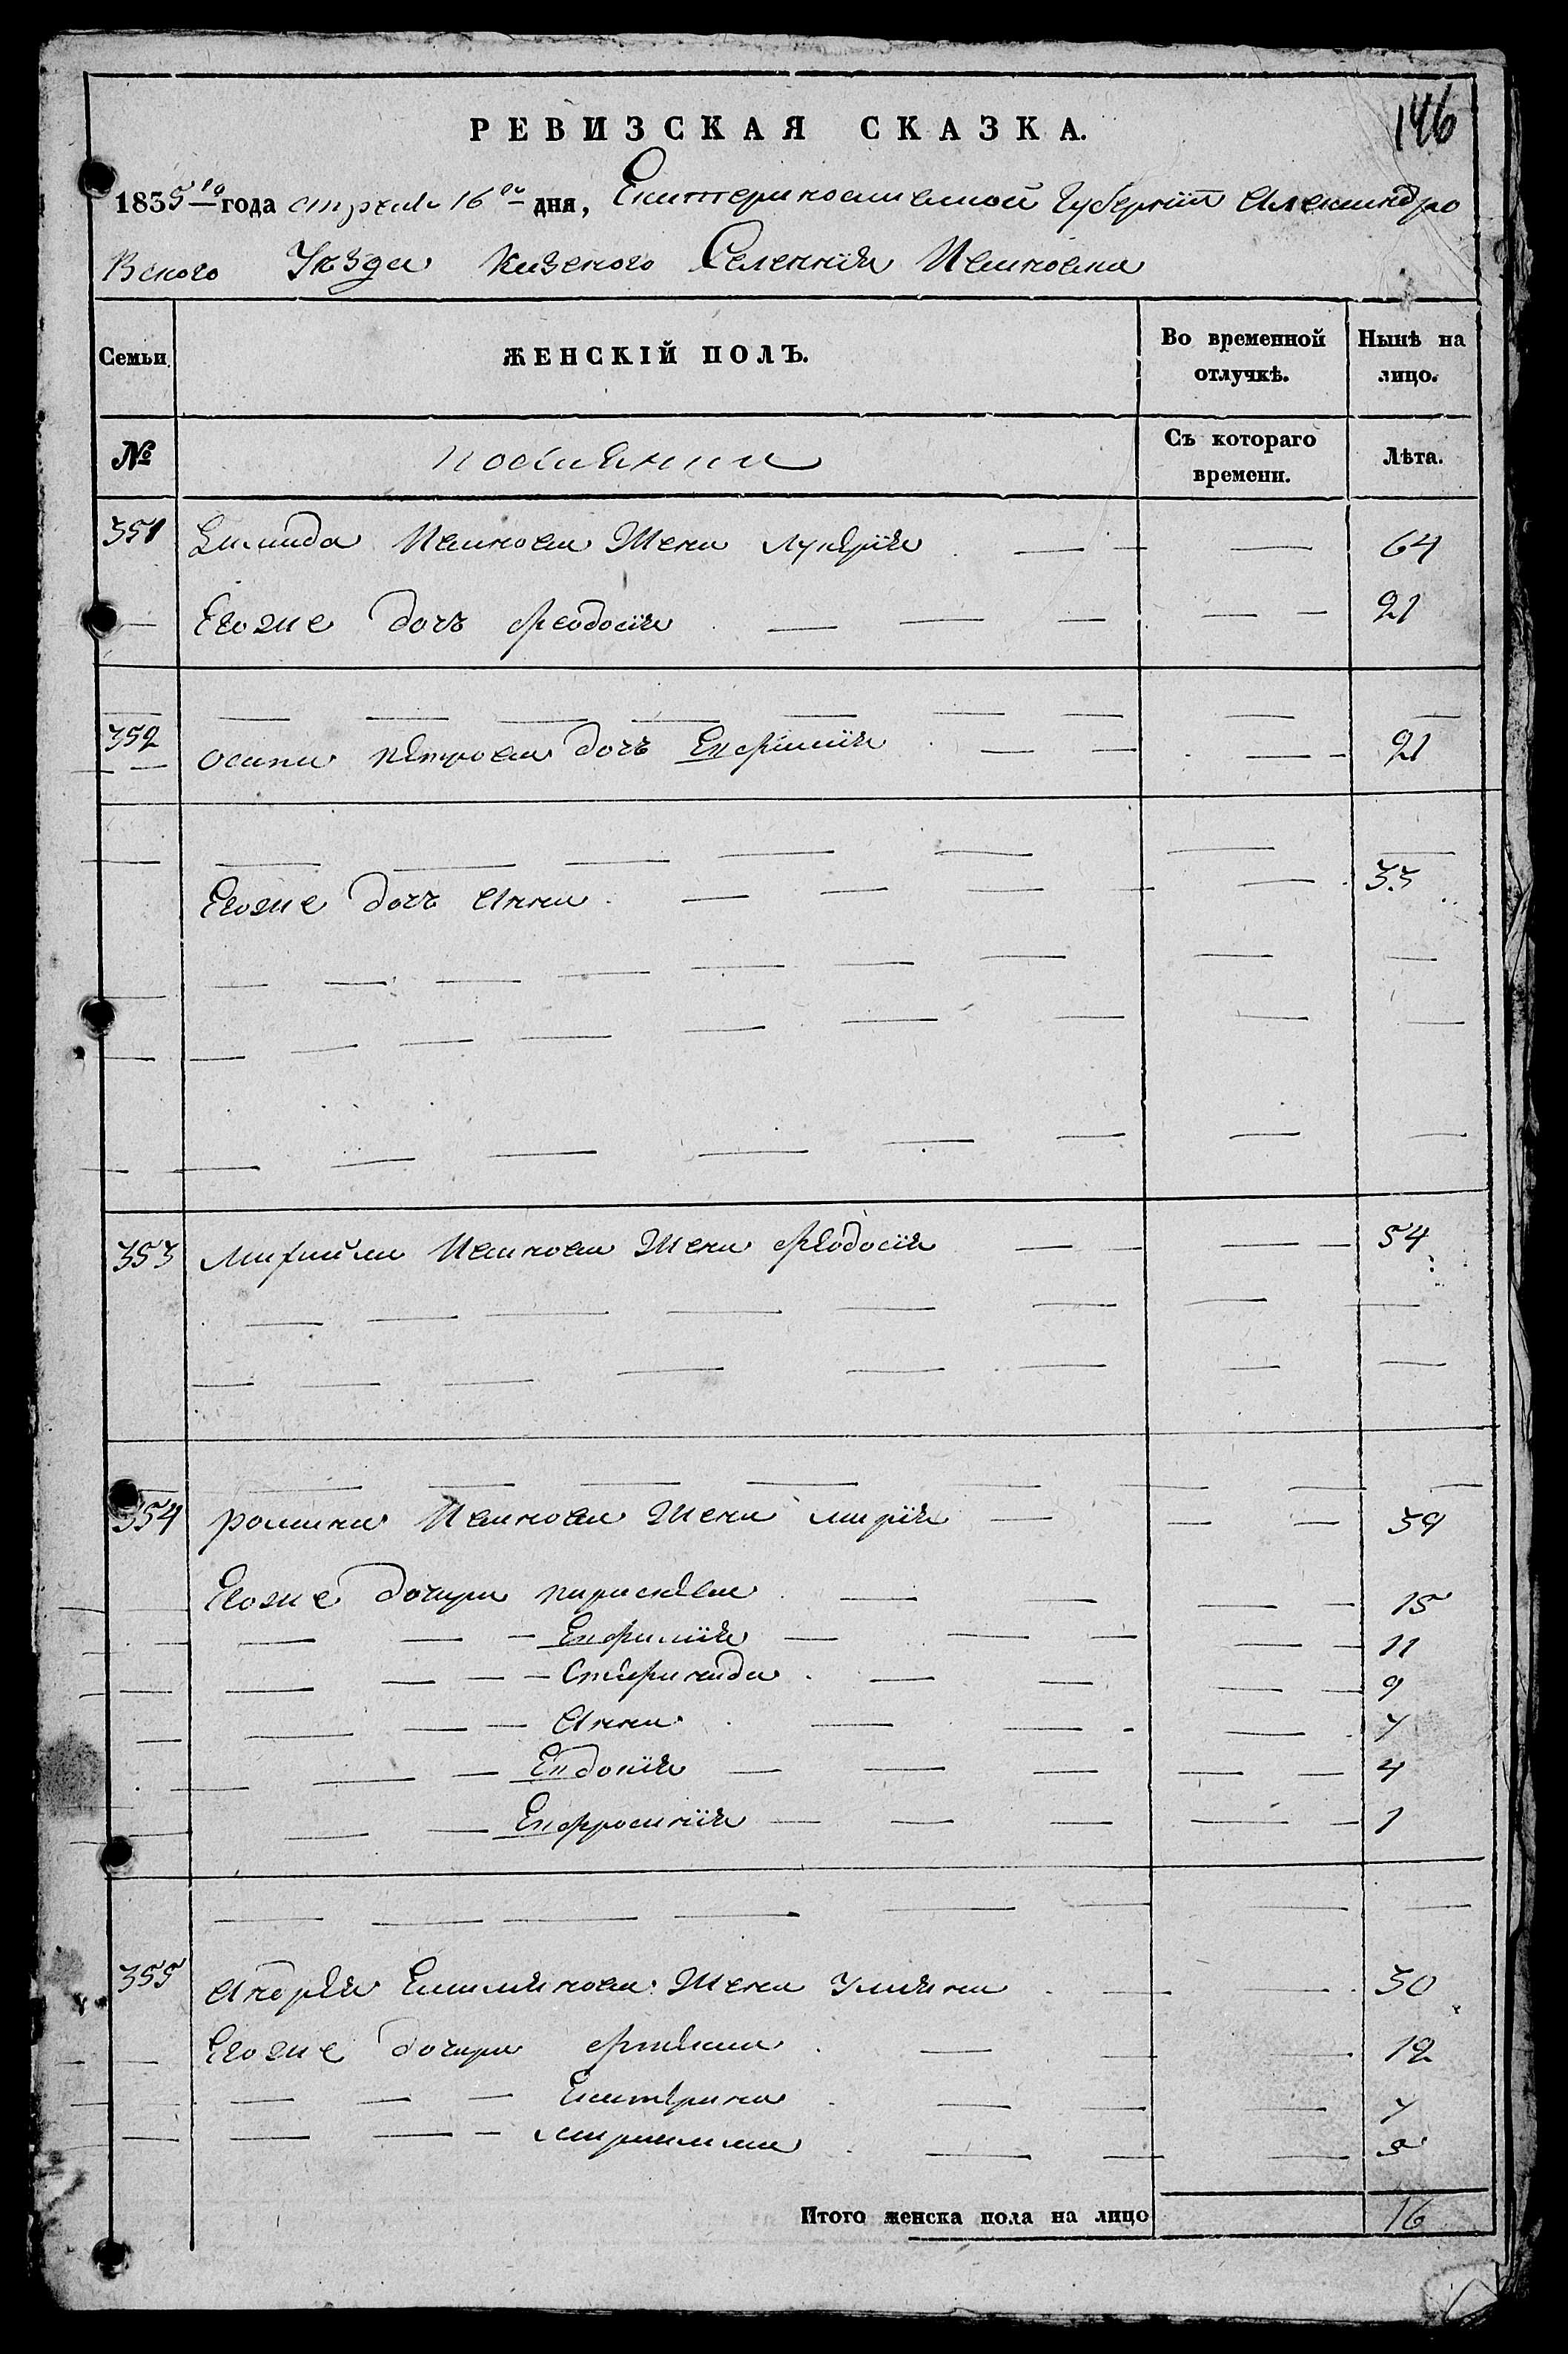 146
РЕВИЗСКАЯ СКАЗКА.
1835го года апреля 16го дня, Екатеринославской Губернии Александро
Вского Уезда Казеного Селения Ивановка
Семьи ЖЕНСКІЙ ПОЛЪ. Во временной отлучкѣ. Нынѣ на лицо.
№ Съ котораго времени. Лѣта.
351 Иванова Жена Лукерія 64
Егоже дочъ Феодосія 21
352 осипа петрова дочъ Ефимія 21
Егоже дочъ Анна 33
353 михайла Иванова Жена Феодосія 54
354 романа Иванова Жена марія 39
Егоже дочери параскева 15
Ефимія 11
Степанида 9
Анна 7
Евдокія 4
Евфросинія 1
355 Андрея Емилянова Жена Уляна 30
Егоже дочери 12
Екатерина 7
марина 5
Итого женска пола на лицо 16